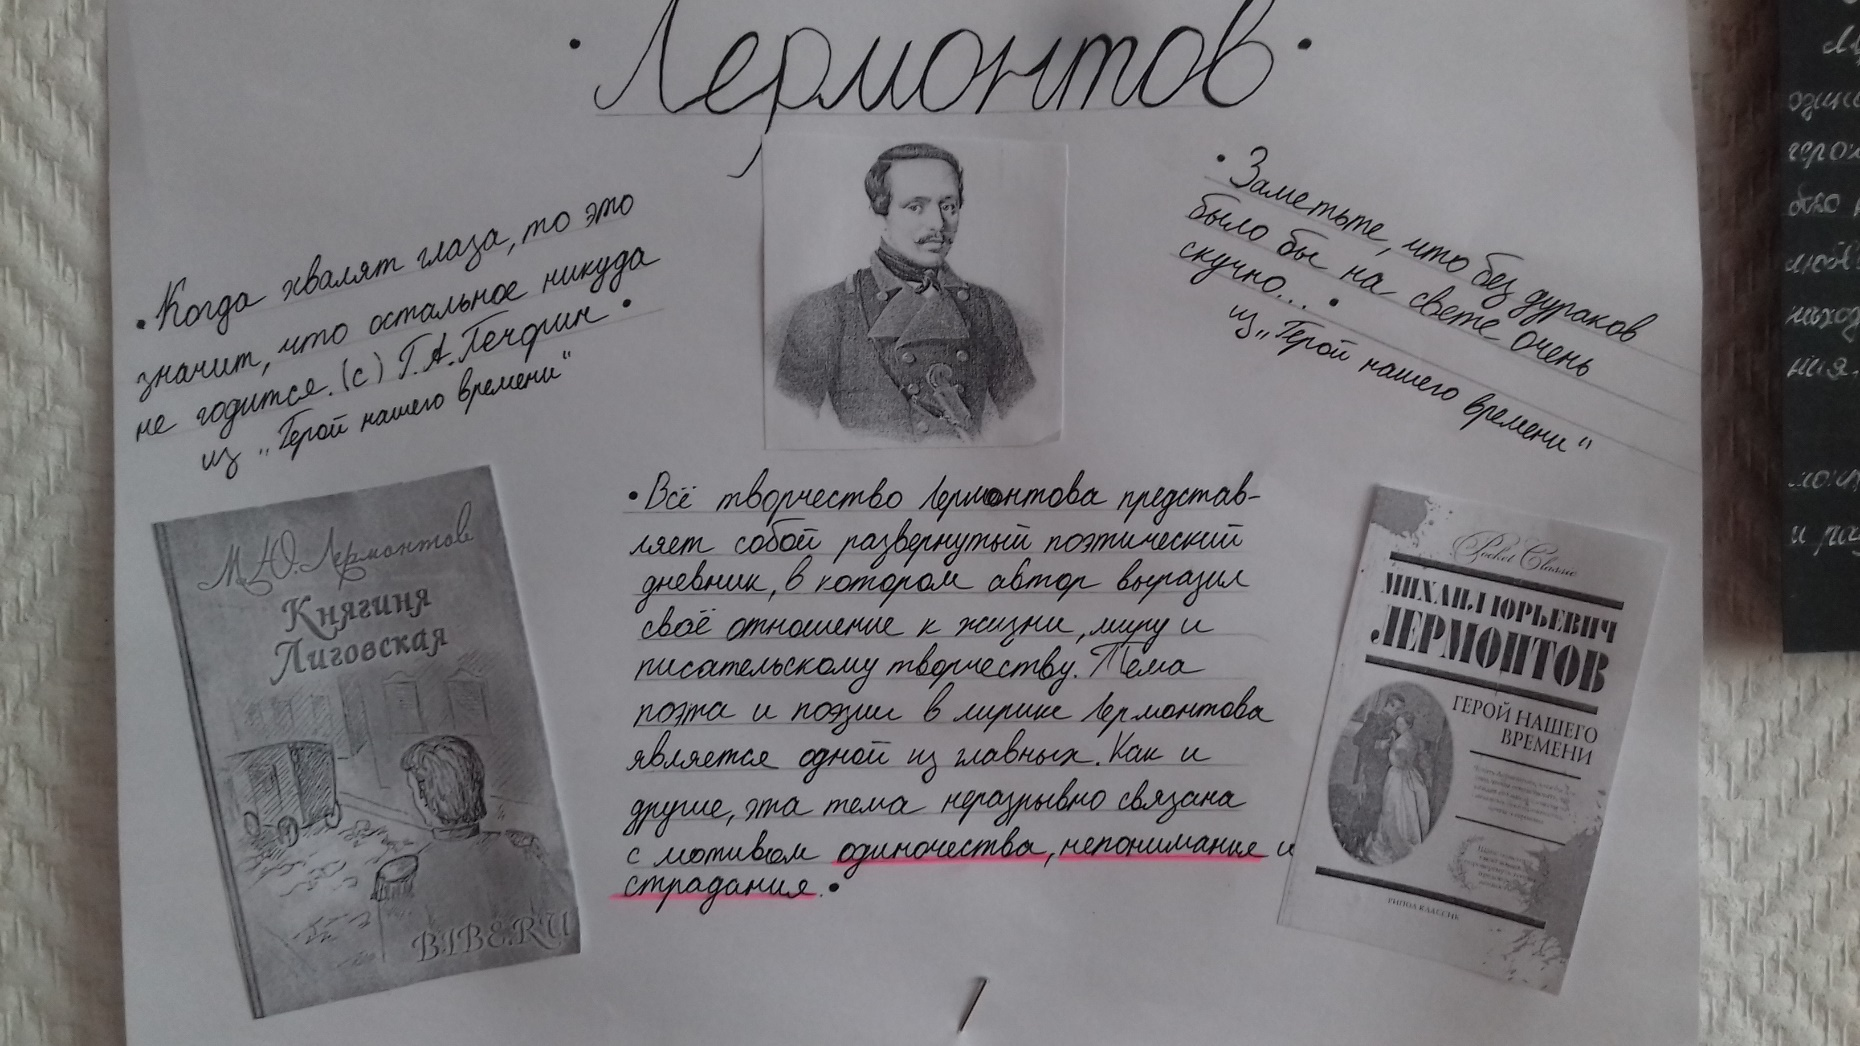 · Лермонтов ·
· Когда хвалят глаза, то это
значит, что остальное никуда
не годится. (с) Г. А. Печорин ·
из „Герой нашего времени“
· Заметьте, что без дураков
было бы на свете очень
скучно... ·
из „Герой нашего времени“
М. Ю. Лермонтов
Княгиня
Лиговская
BIBE.RU
· Всё творчество Лермонтова представ-
ляет собой развернутый поэтический
дневник, в котором автор выразил
своё отношение к жизни, миру и
писательскому творчеству. Тема
поэта и поэзии в лирике Лермонтова
является одной из главных. Как и
другие, эта тема неразрывно связана
с мотивом одиночества, непонимание и
страдания. ·
Pocket Classic
МИХАИЛ ЮРЬЕВИЧ
ЛЕРМОНТОВ
ГЕРОЙ НАШЕГО
ВРЕМЕНИ
РИПОЛ КЛАССИК